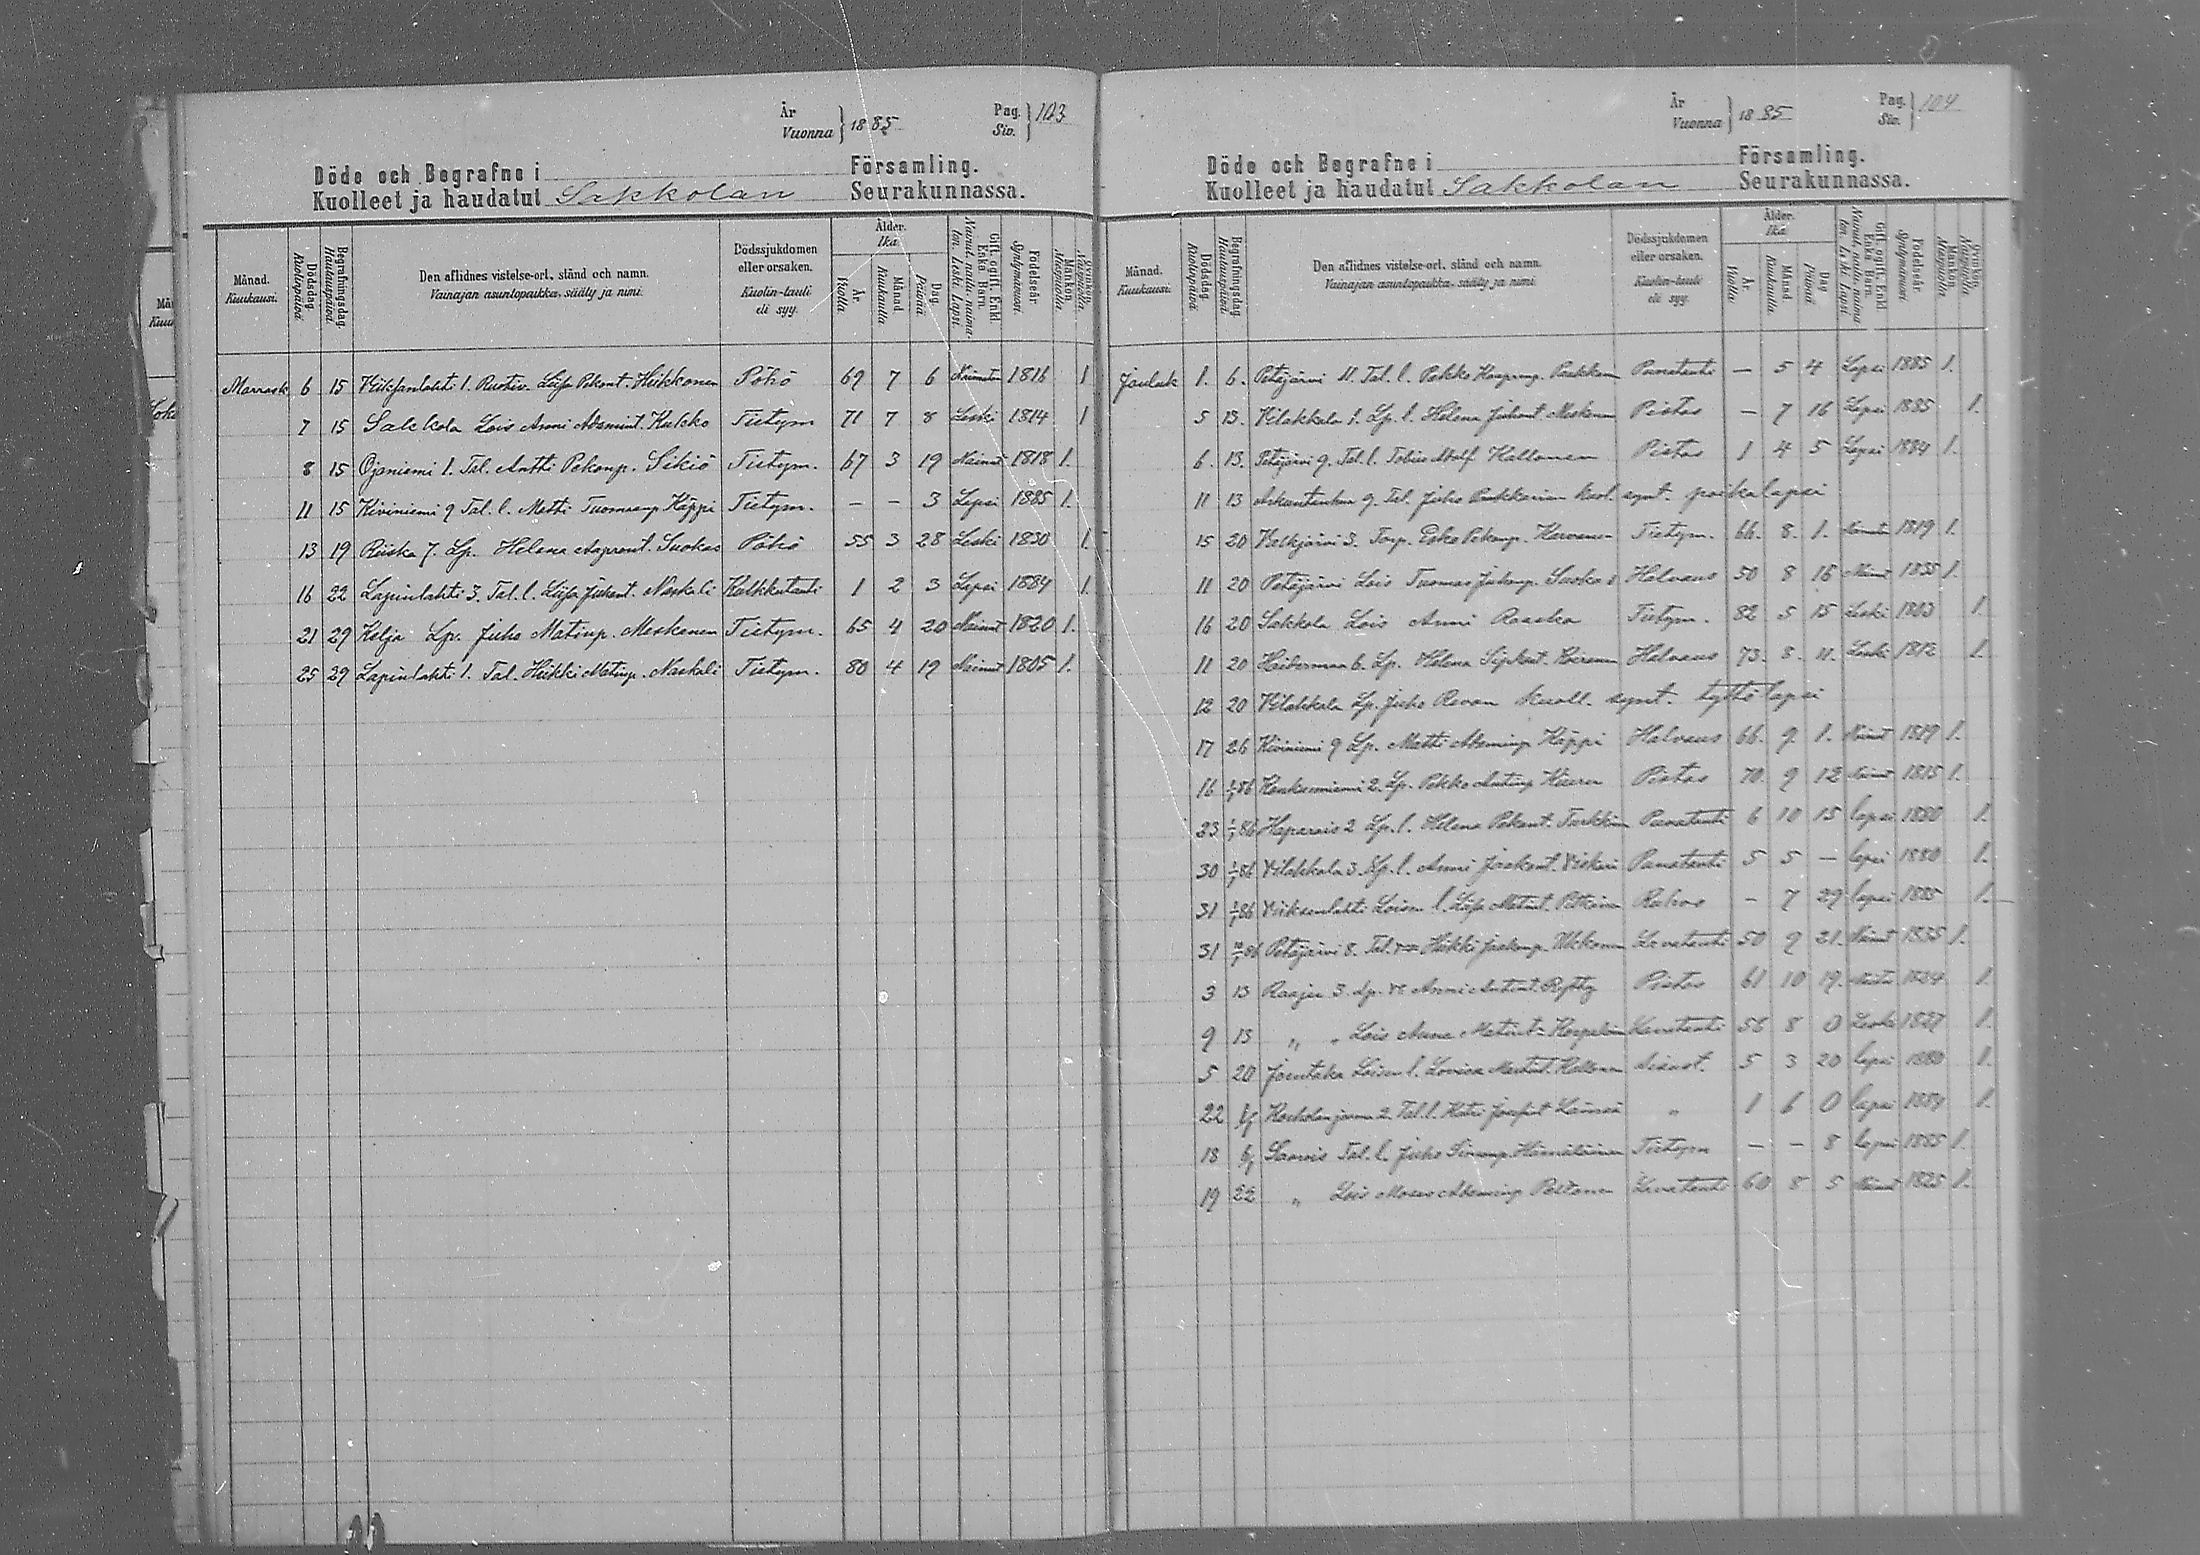 År
Vuonna } 1885
Pag.
Siv. } 103
Döde och Begrafne i Församling.
Kuolleet ja haudatut Sakkolan Seurakunnassa.
Månad. Kuukausi. Dödsdag. Kuolinpäivä. Begrafningsdag. Hautauspäivä. Den aflidnes vistelse-ort, stånd och namn. Vainajan asuntopaikka, sääty ja nimi. Dödssjukdomen eller orsaken. Kuolin-tauti eli syy. Ålder. Ikä. År. Vuotta. Månad. Kuukautta. Dag. Päivää. Gift, ogift, Enkl. Enka, Barn. Nainut, naitu, naimaton, Leski, Lapsi. Födelseår. Syntymävuosi. Mankön. Miespuolia. Qvinkön. Naispuolia.
Marrask 6 15 Viiksanlahti 1. Ruotiv. Liisa Pekant. Heikkonen Pöhö 69 7 6 Naimaton 1816 1
7 15 Sakkola Lois Anni Adamint. Kukko Tietym 71 7 8 Leski 1814 1
8 15 Ojaniemi 1. Tal. Antti Pekonp. Sikiö Tietym. 67 3 19 Nainut 1818 1.
11 15 Kiviniemi 9 Tal. l. Matti Tuomaanp Käppi Tietym. — — 3 Lapsi 1885 1.
13 19 Riiska 7. Lp. Helena Aapront. Suokas Pöhö 55 3 28 Leski 1830 1.
16 22 Lapinlahti 3. Tal. l. Liisa Juhant. Naskali Kalkkutauti 1 2 3 Lapsi 1884 1.
21 29 Kelja Lp. Juho Matinp. Meskanen Tietym. 65 4 20 Nainut 1820 1.
25 29 Lapinlahti 1. Tal. Heikki Matinp. Naskali Tietym. 80 4 19 Nainut 1805 1.
År
Vuonna } 1885
Pag.
Siv. } 104
Döde och Begrafne i Församling.
Kuolleet ja haudatut Sakkolan Seurakunnassa.
Månad. Kuukausi. Dödsdag. Kuolinpäivä. Begrafningsdag. Hautauspäivä. Den aflidnes vistelse-ort, stånd och namn. Vainajan asuntopaikka, sääty ja nimi. Dödssjukdomen eller orsaken. Kuolin-tauti eli syy. Ålder. Ikä. År. Vuotta. Månad. Kuukautta. Dag. Päivää. Gift, ogift, Enkl. Enka, Barn. Nainut, naitu, naimaton, Leski, Lapsi. Födelseår. Syntymävuosi. Mankön. Miespuolia. Qvinkön. Naispuolia.
Jouluk 1. 6. Petäjärvi 11. Tal. l. Pekko Paukkunen Punatauti — 5 4 Lapsi 1885 1.
5 13. Vilakkala 1. Lp. l. Helena Juhant. Meskanen Pistos — 7 16 Lapsi 1885 1.
6. 13. Petäjärvi 9. Tal. l. Tobias Adolf Hallonen Pistos 1 4 5 Lapsi 1884 1.
11 13 9. Tal. Juho Paukkusen kuol. synt. poikalapsi
15 20 Valkjärvi 3. Torp. Esko Pekonp. Tietym. 66. 8. 1. 1819 1.
11 20 Petäjärvi Lois Tuomas Juhonp. Suokas Halvaus 50 8 16 Nainut 1835 1.
16 20 Sakkola Lois Anni Raaska Tietym. 82 5 15 Leski 1803 1.
11 20 Haitermaa 6. Lp. Helena Halvaus 73. 8. 11. Leski 1812 1.
12 20 Vilakkala Lp. Juho Revon kuoll. synt. tyttölapsi
17 26 Kiviniemi 9 Lp. Matti Adaminp Käppi Halvaus 66. 9. 1. Nainut 1819 1.
16 1/1 86 2. Lp. Pekko Antinp Kiuru Pistos 70 9 12 Nainut 1815 1.
23 1/1 86 Haparais 2 Lp. l. Helena Pekant. Punatauti 6 10 15 lapsi 1880 1.
30 1/1 86 Vilakkala 3. Lp. l. Anni Jaakont. Punatauti 5 5 — lapsi 1880 1.
31 1/1 86 Viiksanlahti Loisen l. Liisa Matint. Pitkänen — 7 29 lapsi 1885 1.
31 Petäjärvi 8. Tal. Heikki Ukkonen Lavatauti 50 9 21. Nainut 1835 1.
3 13 Raajus 3. Lp. Anni Antint. Pistos 61 10 19. 1824 1.
9 13 „ „ Lois Anna Matint. Lavatauti 58 8 0 Leski 1827 1.
5 20 Loisen l. Lovisa Hallonen 5 3 20 lapsi 1880 1.
22 2. Tal. l. „ 1 6 0 lapsi 1884 1.
18 Tal. l. Juho Simonp Hämäläinen Tietym — — 8 lapsi 1885 1.
19 22 „ Lois Moses Adaminp Peltonen Lavatauti 60 8 5 Nainut 1825 1.